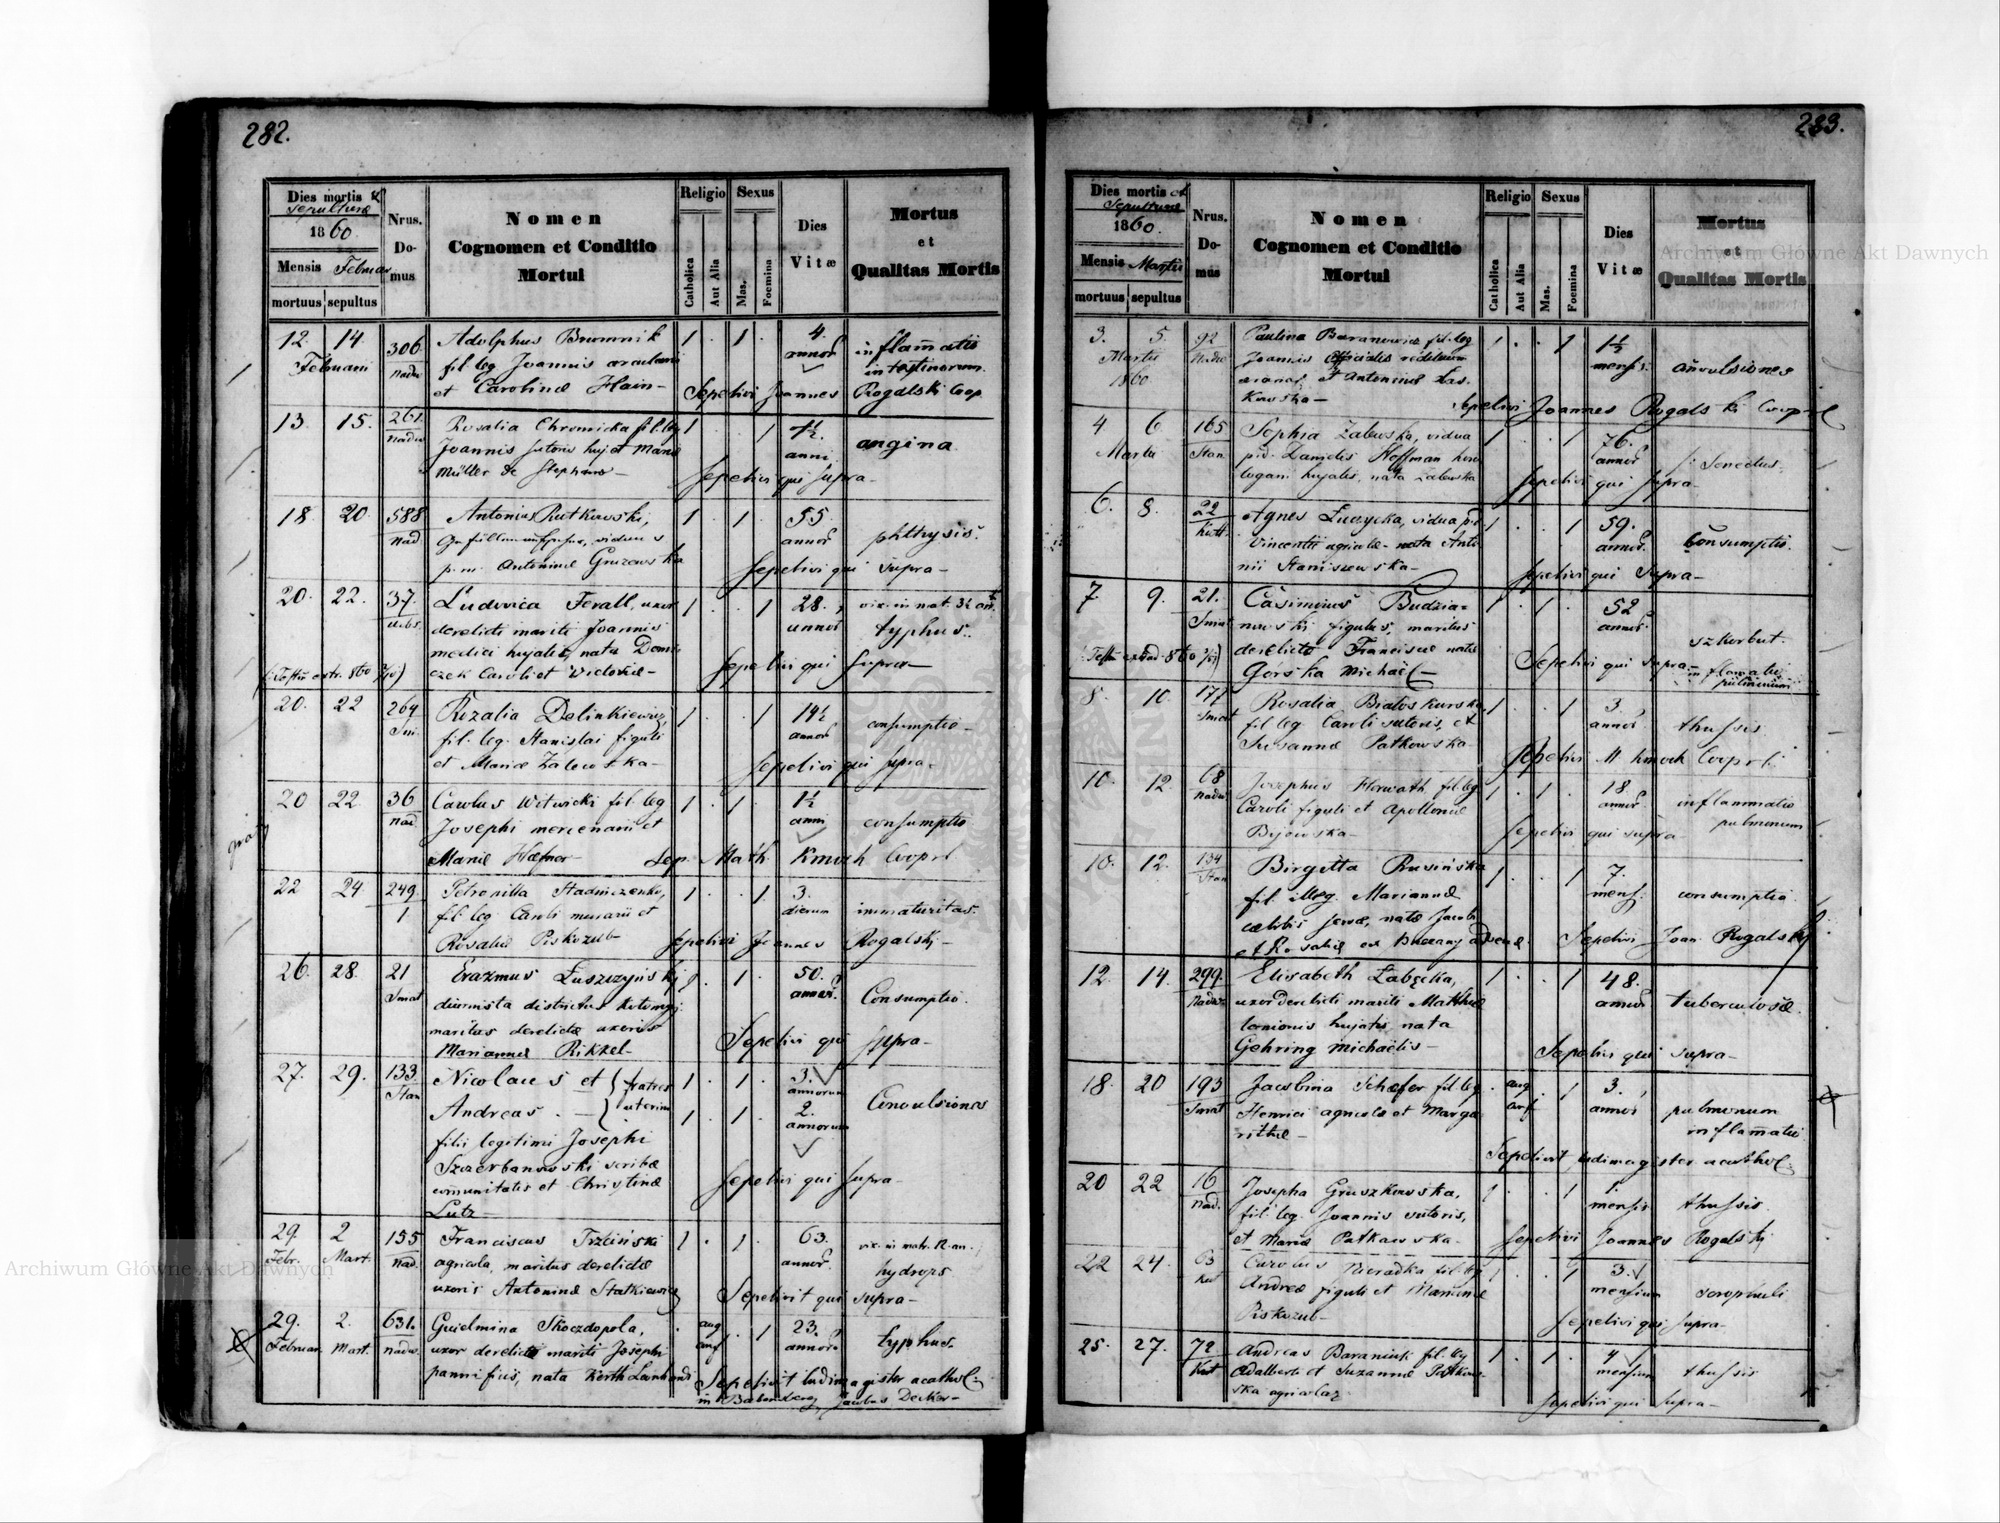 282.
Dies mortis et
Sepulturæ
1860.
Mensis Februar
mortuus sepultus
Nrus. Domus
Nomen
Cognomen et Conditio
Mortui
Religio
Catholica
Aut Alia
Sexus
Mas.
Foemina
Dies
Vitæ
Mortus
et
Qualitas Mortis
12 14 306 Adolphus Brumnik 1 . 1 . 4. inflam̄atio
Februarii fil. leg Joannis annor intestinorum
et Carolinæ Hain- Sepelivi Joannes Rogalski Coop
13 15. 261. Rosalia Chromicka fil. leg 1 . . 1 1½ angina
Joannis sutoris huj et Mariæ anni
Müller de Stephano- Sepelivi qui supra-
18 20. 588 Antonius Rutkowski, 1 . 1 . 55 phthysis.
nad viduus annor
p.m. Antoninæ Gruzewska Sepelivi qui supra-
20. 22. 37. Ludovica Ferall, uxor 1 . . 1 28. vix. in mat. 3½ an.
urbs. derelicti mariti Joannis annor typhus.
medici hujatis, nata
czek Caroli et Victoriæ- Sepelivi qui supra-
20. 22 264 Rozalia Delinkiewicz 1 . . 1 14½ consumptio-
fil. leg. Stanislai figuli annor
et Mariæ Zalewska- Sepelivi qui supra-
20 22. 36 Carolus Witwicki fil. leg 1 . 1 . 1½ consumptio
nad Josephi mercenarii et anni
Mariæ Hæfner Sep. Math Kmoch Cooprt
22 24 249. Petronilla 1 . . 1 3. immaturitas.
1 fil. leg Caroli murarii et dierum
Rosaliæ Piskozub- Sepelivi Joannes Rogalski-
26. 28. 21 Erazmus Łuszczyński 1 . 1 . 50. Consumptio.
Smat diurnista districtus annor.
maritus derelictæ uxoris
Mariannæ Rikzel- Sepelivi qui supra-
27. 29. 133 Nicolaus et fratres 1 . 1 . 3. Convulsiones
Stan annorum
Andreas . - uterini 1 . 1 . 2.
annorum
filii legitimi Josephi
Szczerbanowski scribæ
com̄unitatis et Christinæ Sepelivi qui supra-
Lutz-
29. 2 155 Franciscus Trzciński 1 . 1 . 63. vix. in matr. 12. an.
Febr. Mart. nad. agricola, maritus derelictæ annor. hydrops
uxoris Antoninæ Statkiewicz Sepelivit qui supra-
29. 2. 631. Guielmina Skoczdopola, . aug . 1 23. typhus.
Februar. Mart. nadw. uxor derelicti mariti Josephi conf annor
pannificis, nata Kerth Leonhardi Sepelivit ludimagister acathol.
in Jacobus Decker-
283.
Dies mortis et
Sepulturæ
1860.
Mensis Martii
mortuus sepultus
Nrus. Domus
Nomen
Cognomen et Conditio
Mortui
Religio
Catholica
Aut Alia
Sexus
Mas.
Foemina
Dies
Vitæ
Mortus
et
Qualitas Mortis
3. 5. 92 Paulina Baranowicz fil. leg 1 . . 1 1½
Martii Nadw Joannis Officialis mensis convulsiones
1860 et Antoninæ Łas.
kowska- Sepelivi Joannes Rogalski Cooprt
4 6 165 Sophia Zalewska, vidua 1 . . 1 76.
Martii Stan. p.d. Danielis Hoffman horo annor Senectus.
logarii hujatis, nata Zalewska Sepelivi qui supra-
6. 8. 22 Agnes Łuczycka, vidua p.d. 1 . . 1 59. Consumptio.
Kutt. Vincentii agricolæ- nata Anto annor.
nii Staniszewska- Sepelivi qui supra-
7 9. 21. Casimirus Budzia- 1 . 1 . 52
Smat nowski figulus, maritus annor szkorbut
derelictæ Franciscæ natæ Sepelivi qui supra- inflam̄atio
Górska Michaël- pulmonum
8. 10. 177 Rosalia Białoskurska 1 . . 1 3. thussis.
Smat fil leg Caroli sutoris, et annor
Susannæ Patkowska- Sepelivi M Kmoch Cooprt.
10. 12. 68 Josephus Horwath fil. leg 1 . 1 . 18 inflammatio
nadw Caroli figuli et Apolloniæ annor pulmonum
Sepelivi qui supra-
10. 12. 134 Birgitta Prusińska 1 . . 1 7. consumptio.
Stan fil. illeg. Mariannæ mens.
cælibis servæ, natæ Jacobi
et Rosaliæ Sepelivi Joan Rogalski
12 14 299. Elisabeth Łabęcka, 1 . . 1 48. tuberculosæ
Nadw. uxor derelicti mariti Matthiæ annor
hujatis, nata
Gehring Michaëlis- Sepelivi qui supra-
18. 20 193 Jacobina Schæfer fil leg . aug . 1 3. pulmonum
Smat Henrici agricolæ et Marga conf annor inflam̄atio
rithæ- Sepelivit ludimagister acathol.
20 22 16 Josepha Gruszkowska, 1 . . 1 1 thussis.
Nad. fil. leg. Joannis sutoris, mensis
et Mariæ Patkowska- Sepelivi Joannes Rogalski
22 24. 63 Carolus Nieradka fil. leg 1 . . 1 3. scrophuli
Andreæ figuli et Mariannæ mensium
Piskozub- Sepelivi qui supra-
25. 27. 72 Andreas Baraniuk fil. leg 1 . 1 . 4 thussis
Kut Adalberti et Suzannæ Patkow mensium
ska agricolar Sepelivi qui supra-
Archiwum Główne Akt Dawnych
Archiwum Główne Akt Dawnych